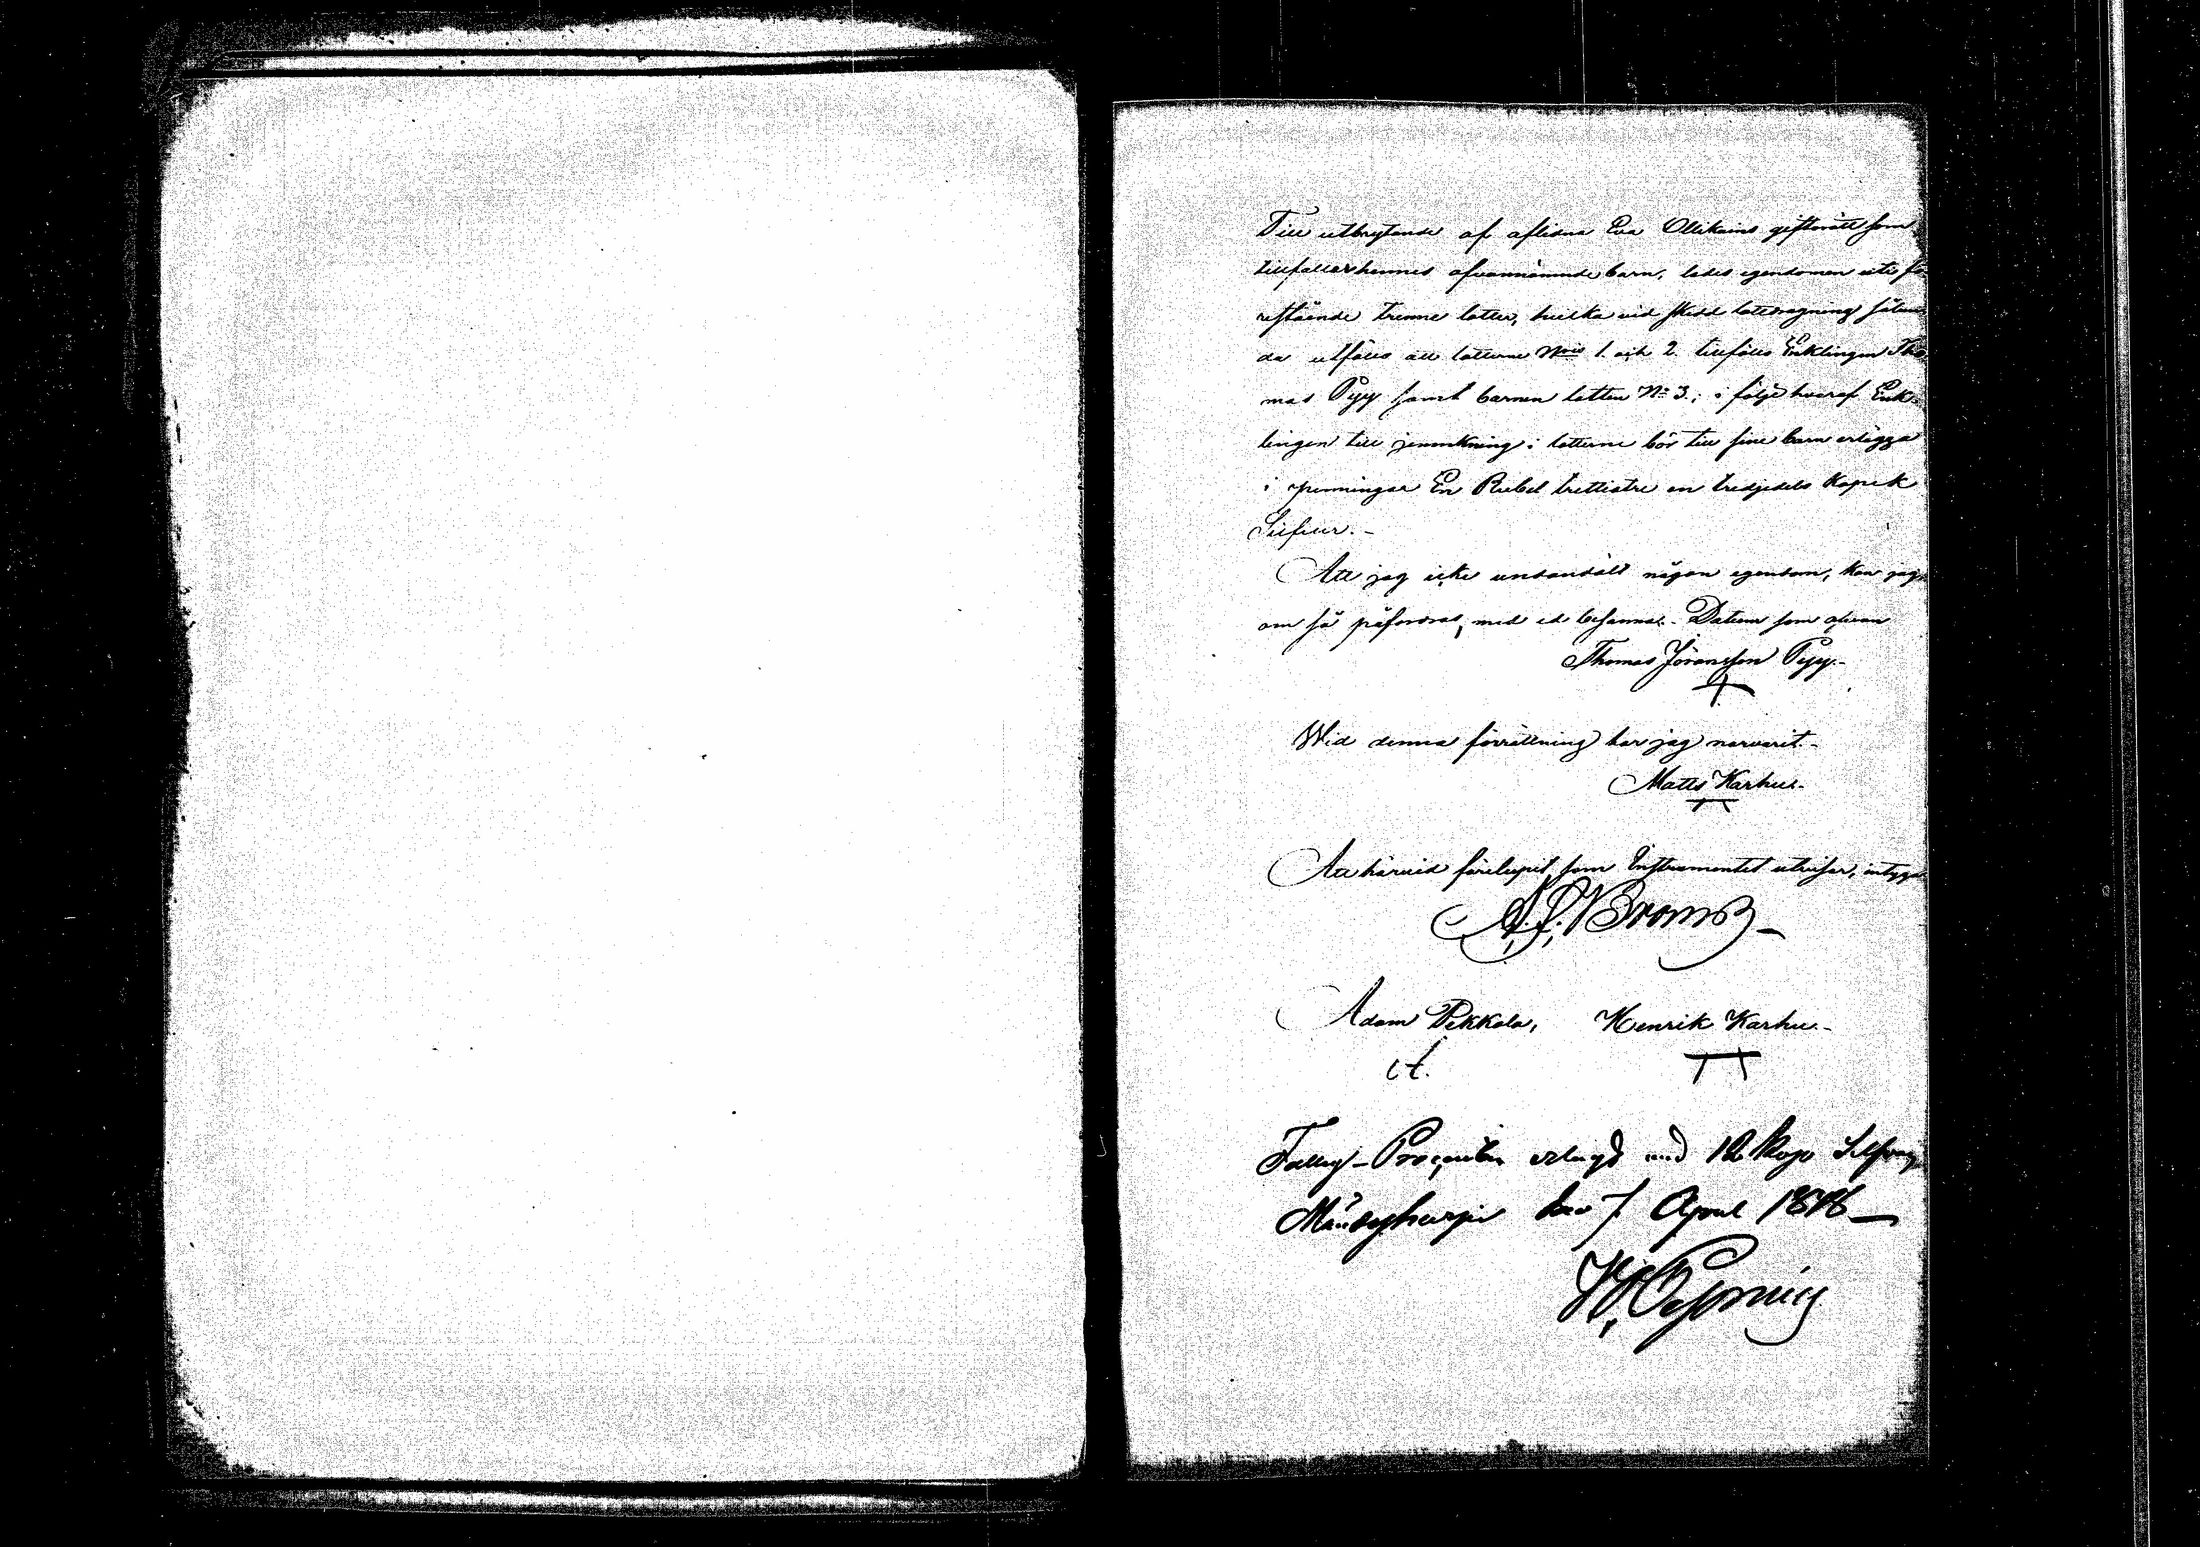 Till utbrytande af aflidna Eva Ollikains giftorätt som
tillfaller hennes ofvannämnde barn, lades egendomen uti fö-
restående trenne lotter, hvilka vid skedd lottdragning sålun-
da utföllo att lotterne N:ris 1. och 2. tillföllo Enklingen Tho-
mas Pyy samt barnen lotten N:o 3.; i följe hvaraf Enk-
lingen till jemnkning i lotterne bör till sine barn erlägga
i penningar En Rubel trettiotre en tredjedels Kopek
Silfver.-
Att jag icke undandölt någon egendom, kan jag,
om så påfordras, med ed besanna.- Datum som ofvan
Thomas Jöransson Pyy.-
Wid denna förrättning har jag närvarit.-
Matts Karhu.-
Att härvid förelupit som Instrumentet utvisar, intyga
Adam Pekkala, Henrik Karhu.-
Fattig-Procenten erlagd med 12 kop Silfver
den 7 April 1846